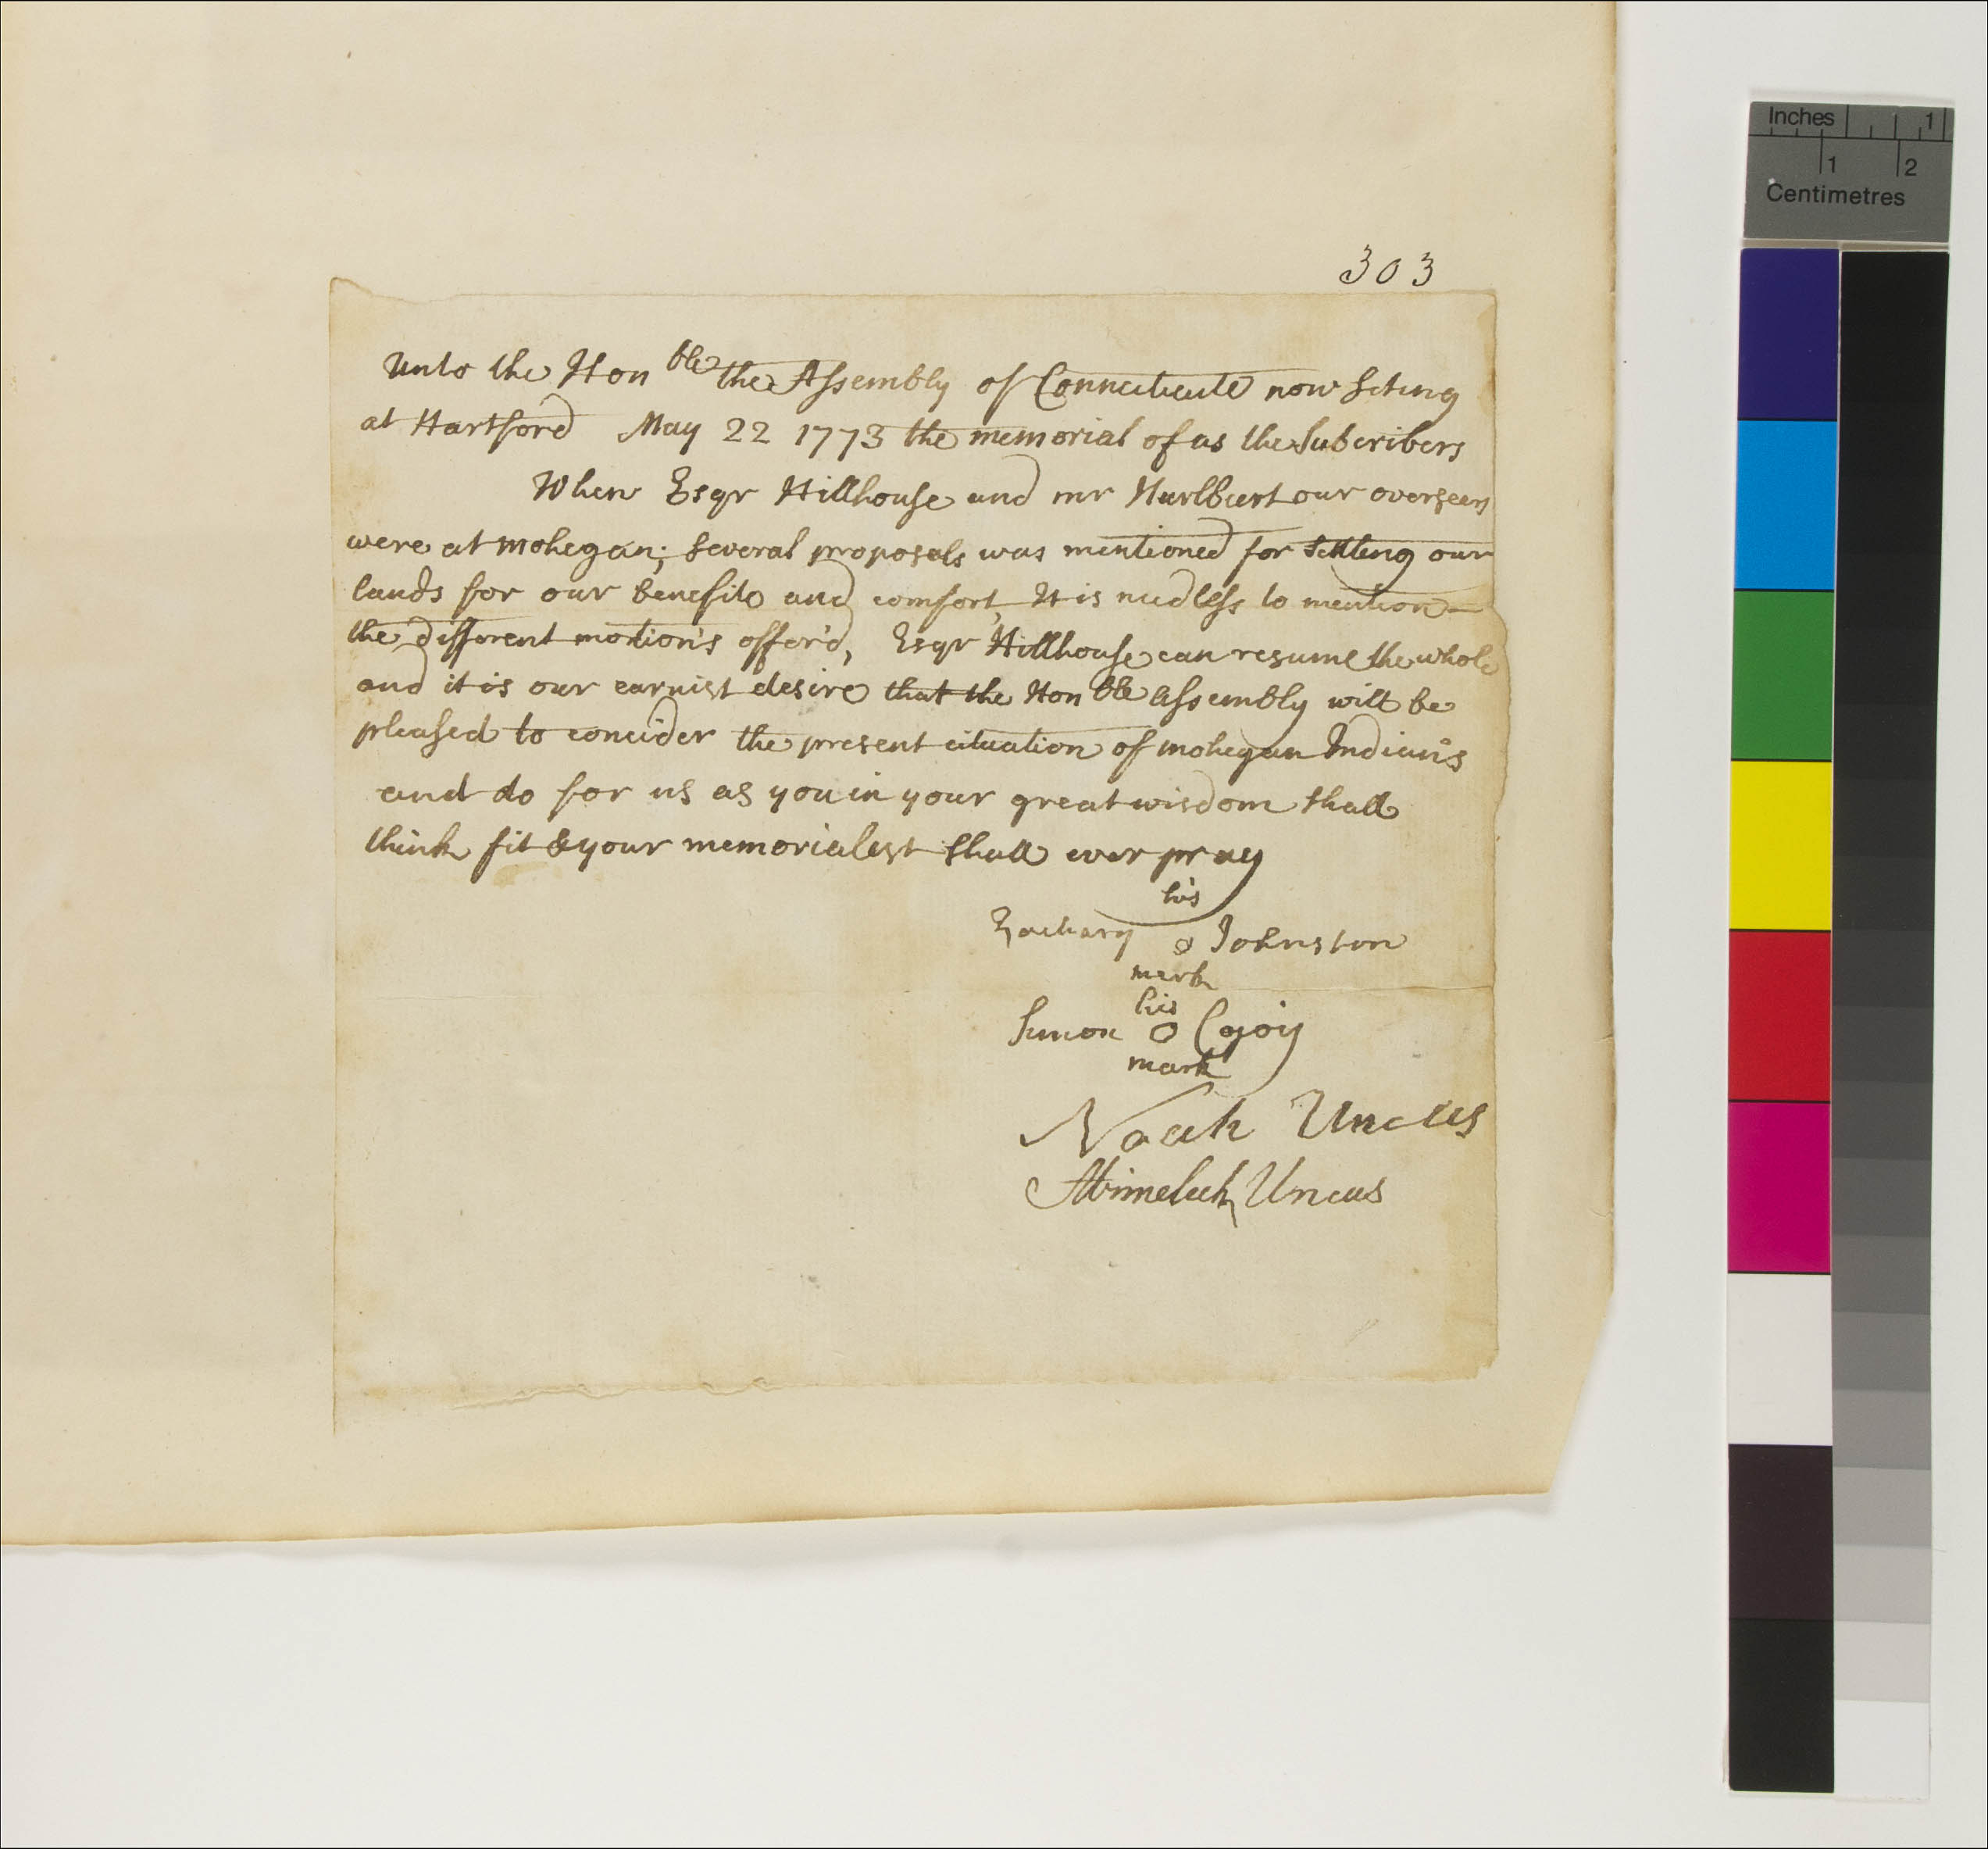 Inches 1
1 2
Centimetres
303
Unto the Hon ble the Assembly of Connecticute now Seting
at Hartford May 22 1773 the memorial of us the Subcribers
When Esqr Hillhouse and mr Hurlburt our overseers
were at mohegan; Several proposals was mentioned for Settleng our
lands for our benefito and comfort, It is nudless to mention
the different motion's offer'd, Esqr Hillhouse can resume the whole
and it is our earnist desire that the Hon ble Assembly will be
pleased to concider the present cituation of mohegan Indian's
and do for us as you in your great wisdom Shall
think fit & your memorialest Shall ever pray
his
Zachary o Johnston
mark
his
Simon o Cojoy
mark
Noah Uncus
Abimelech Uncus